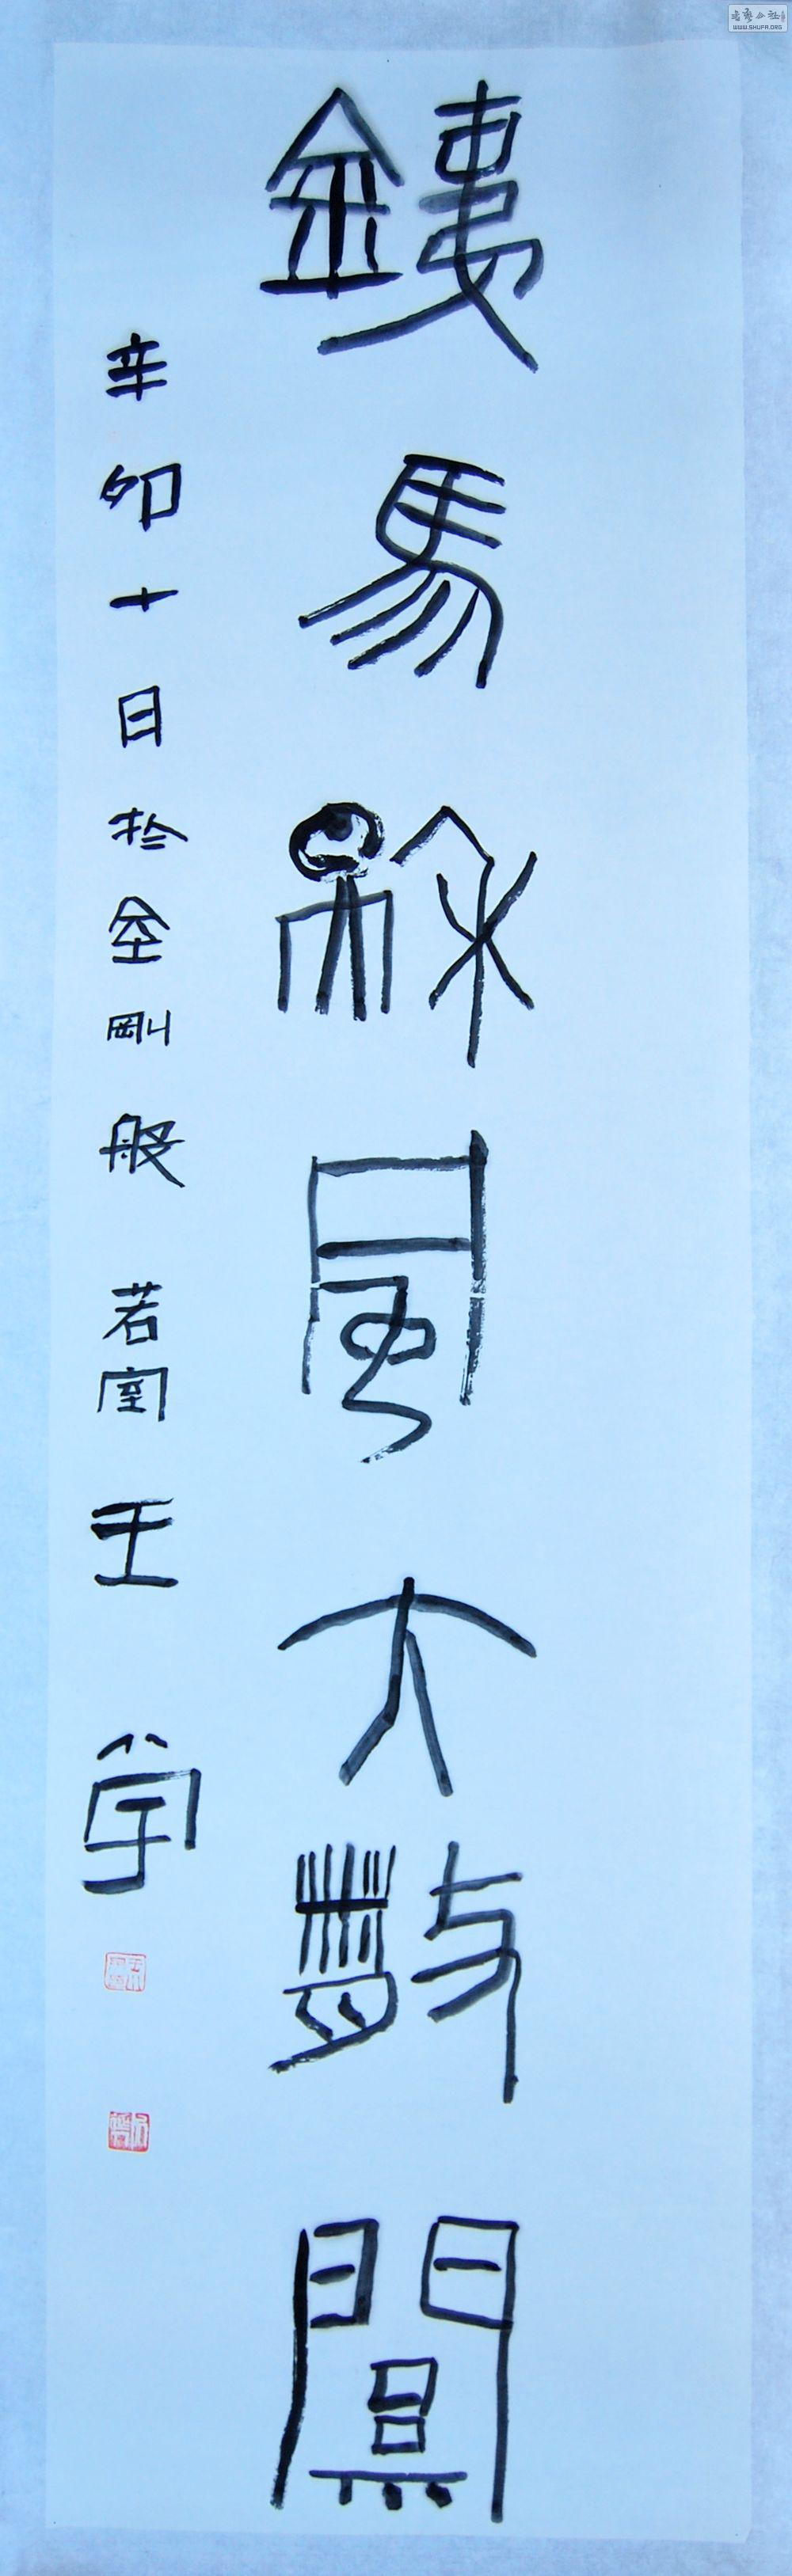 銕馬秋風大散關
辛卯十日於金剛般若室王
WWW.SHUFA.ORG